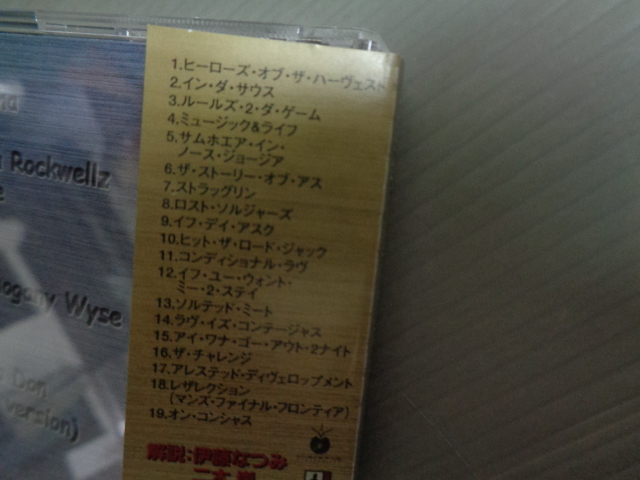 1.ヒーローズ・オブ・ザ・ハーヴェスト
2.イン・ダ・サウス
3.ルールズ・2・ダ・ゲーム
4.ミュージック&ライフ
5.サムホエア・イン・
ノース・ジョージア
6.ザ・ストーリー・オブ・アス
7.ストラッグリン
8.ロスト・ソルジャーズ
9.イフ・デイ・アスク
10.ヒット・ザ・ロード・ジャック
11.コンディショナル・ラヴ
12.イフ・ユー・ウォント・
ミー・2・ステイ
13.ソルテッド・ミート
14.ラヴ・イズ・コンテージャス
15.アイ・ワナ・ゴー・アウト・2ナイト
16.ザ・チャレンジ
17.アレステッド・ディヴェロップメント
18.レザレクション
(マンズ・ファイナル・フロンティア)
19.オン・コンシャス
解説:伊藤なつみ
Rockwellz
Wyse
Don
version)